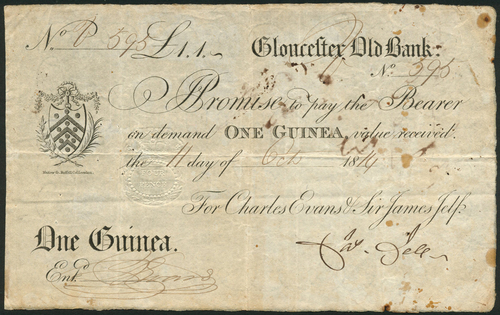 No P 595 £1.1.- Gloucester Old Bank:
No 595
I Promise to pay the Bearer
on demand ONE GUINEA, value received.
the 11 day of Octr 1814
For Charles Evans & Sir James Jelf.
Jas Jelf
One Guinea.
Entd